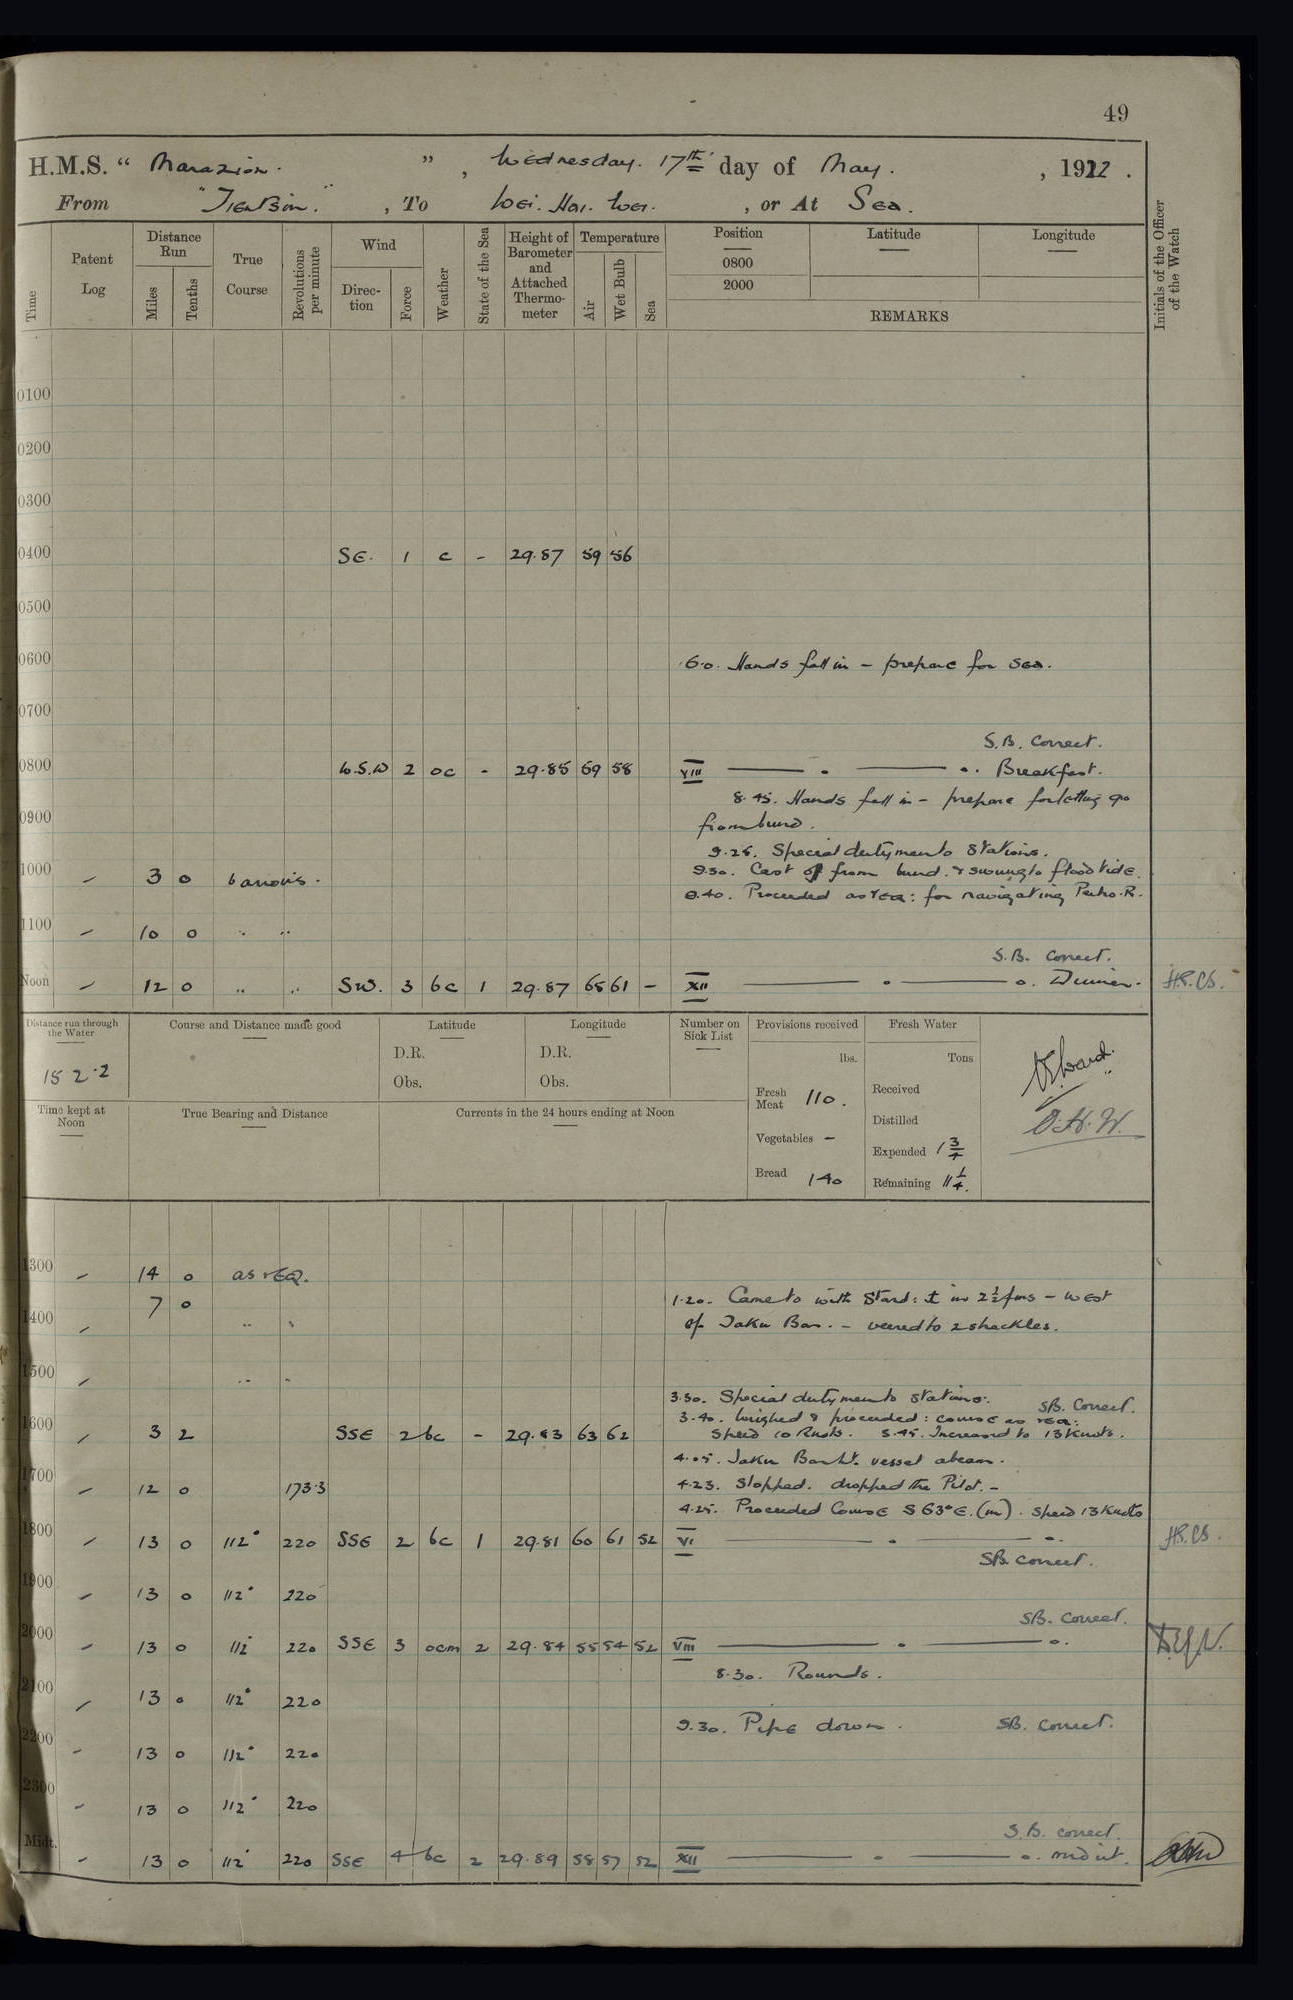 49
H.M.S. “ Marazion. ” , Wednesday. 17th day of May. , 1922 .
From "Tientsin." , To Wei. Hai. Wei. , or At Sea.
Time
Patent Log
Distance Run
Miles
Tenths
True Course
Revolutions per minute
Wind
Direc-tion
Force
Weather
State of the Sea
Height of Barometer and Attached Thermo-meter
Temperature
Air
Wet Bulb
Sea
Position
Latitude
Longitude
0800
2000
REMARKS
Initials of the Officer of the Watch
0100
0200
0300
0400 SE. 1 c - 29.87 59 56
0500
0600 6.0. Hands fall in - prepare for sea.
0700
S.B. Correct.
0800 W.S.W 2 oc - 29.85 69 58 VIII — . — .. Breakfast.
8.45. Hands fall in - prepare for letting go
0900 from bund.
9.25. Special dutymen to stations.
1000 - 3 0 9.30. Cast off from bund. & swung to flood tide.
9.40. Proceeded as req: for navigating Peiho. R.
1100 - 10 0 .. ..
S.B. Correct.
Noon - 12 0 .. .. SW. 3 bc 1 29.87 65 61 - XII — . — o. Dinner.
Distance run through the Water
15 2.2
Course and Distance made good
Latitude
D.R.
Obs.
Longitude
D.R.
Obs.
Number on Sick List
Provisions received
lbs.
Fresh Meat 110.
Vegetables -
Bread 140
Fresh Water
Tons
Received
Distilled
Expended 1 3/4
Remaining 11 1/4.
O.H.W.
Time kept at Noon
True Bearing and Distance
Currents in the 24 hours ending at Noon
1300 - 14 0 as req.
7 0 1.20. Came to with Starb: ⚓ in 2½ fms - West
1400 - .. .. of Taku Bar. - veered to 2 shackles.
1500 - .. ..
3.30. Special dutymen to stations.
SB. Correct.
3.40. Weighed & proceeded: course as req:
1600 - 3 2 SSE 2 bc - 29.83 63 62 Speed 10 Knots. 3.45. Increased to 13 Knots.
4.05. Taku Bar Lt. vessel abeam.
1700 - 12 0 173.3 4.23. Stopped. dropped the Pilot. -
4.25. Proceeded Course S 63° E. (m). Speed 13 Knots
1800 - 13 0 112° 220 SSE 2 bc 1 29.81 60 61 52 VI — . — ..
SB. correct.
1900 - 13 0 112° 220
SB. Correct.
2000 - 13 0 112 220 SSE 3 ocm 2 29.84 55 54 52 VIII — . — o.
8.30. Rounds.
2100 - 13 0 112° 220
9.30. Pipe down. SB. Correct.
2200 - 13 0 112° 220
2300 - 13 0 112° 220
S.B. correct.
Midt. - 13 0 112° 220 SSE 4 bc 2 29.89 58 57 52 XII — . — o. midnt.